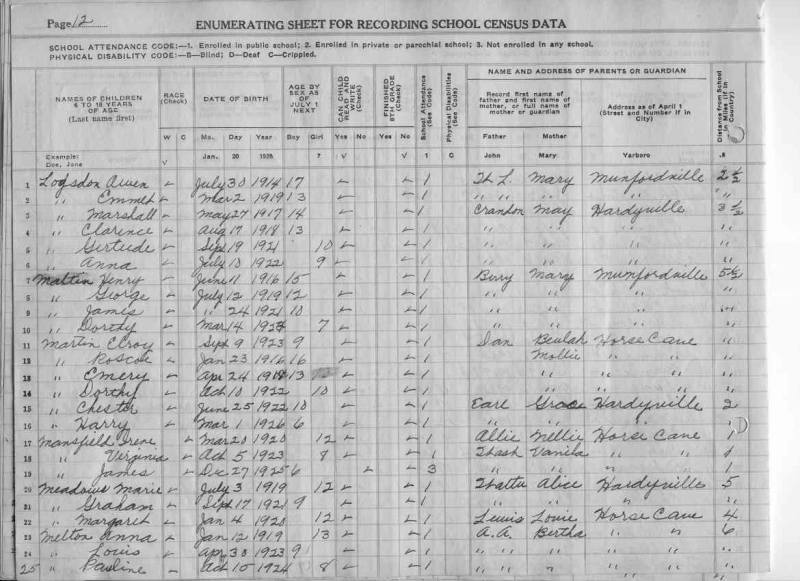 Page 12
ENUMERATING SHEET FOR RECORDING SCHOOL CENSUS DATA
SCHOOL ATTENDANCE CODE:—1. Enrolled in public school; 2. Enrolled in private or parochial school; 3. Not enrolled in any school.
PHYSICAL DISABILITY CODE:—B—Blind; D—Deaf C—Crippled.
NAMES OF CHILDREN 6 TO 18 YEARS OF AGE (Last name first) RACE (Check) W C DATE OF BIRTH Mo. Day Year AGE BY SEX AS OF JULY 1 NEXT Boy Girl CAN CHILD READ AND WRITE (Check) Yes No FINISHED 8TH GRADE (Check) Yes No School Attendance (See Code) Physical Disabilities (See Code) NAME AND ADDRESS OF PARENTS OR GUARDIAN Record first name of father and first name of mother, or full name of mother or guardian Father Mother Address as of April 1 (Street and Number if in City) Distance from School in Miles (if in Country)
Example: Doe, Jane √ Jan. 20 1925 7 √ √ 1 C John Mary Yarboro .8
1 Logsdon Owen ✓ July 30 1914 17 ✓ ✓ 1 Th L. Mary Munfordville 2½
2 " Emmett ✓ Mar 2 1919 13 ✓ ✓ 1 " " " " "
3 " Marshall ✓ May 27 1917 14 ✓ ✓ 1 Crandon May Hardyville 3½
4 " Clarence ✓ Aug 17 1918 13 ✓ ✓ 1 " " " "
5 " Gertrude ✓ Sept 19 1921 10 ✓ ✓ 1 " " " "
6 " Anna ✓ July 10 1922 9 ✓ ✓ 1 " " " "
7 Henry ✓ June 11 1916 15 ✓ ✓ 1 Berry Mary Munfordville 5½
8 " George ✓ July 12 1919 12 ✓ ✓ 1 " " " "
9 " James ✓ " 24 1921 10 ✓ ✓ 1 " " " "
10 " Dorothy ✓ Mar 14 1924 7 ✓ ✓ 1 " " " "
11 Martin Elroy ✓ Sept 9 1923 9 ✓ ✓ 1 Dan Beulah Horse Cave "
12 " Roscoe ✓ Jan 23 1916 16 ✓ ✓ 1 Mollie " " "
13 " Emery ✓ Apr 24 1918 13 ✓ ✓ 1 " " " "
14 " Dorthy ✓ Oct 10 1922 10 ✓ ✓ 1 " " " "
15 " Chester ✓ June 25 1922 10 ✓ ✓ 1 Earl Grace Hardyville 2
16 " Harry ✓ Mar 1 1926 6 ✓ ✓ 1 " " " "
17 Mansfield Irene ✓ Mar 20 1920 12 ✓ ✓ 1 Allie Nellie Horse Cave 1
18 " Virginia ✓ Oct 5 1923 8 ✓ ✓ 1 Vanita " " 1
19 " James ✓ Dec 27 1925 6 ✓ ✓ 3 " " " 1
20 Meadows Marie ✓ July 3 1919 12 ✓ ✓ 1 Alice Hardyville 5
21 " Graham ✓ Sept 17 1921 9 ✓ ✓ 1 " " " "
22 " Margaret ✓ Jan 4 1920 12 ✓ ✓ 1 Lewis Louie Horse Cave 4
23 Melton Anna ✓ Jan 12 1919 13 ✓ ✓ 1 A.A. Bertha " " 6
24 " Louis ✓ Apr 30 1923 9 ✓ ✓ 1 " " " " "
25 " Pauline ✓ Oct 10 1924 8 ✓ ✓ 1 " " " " "